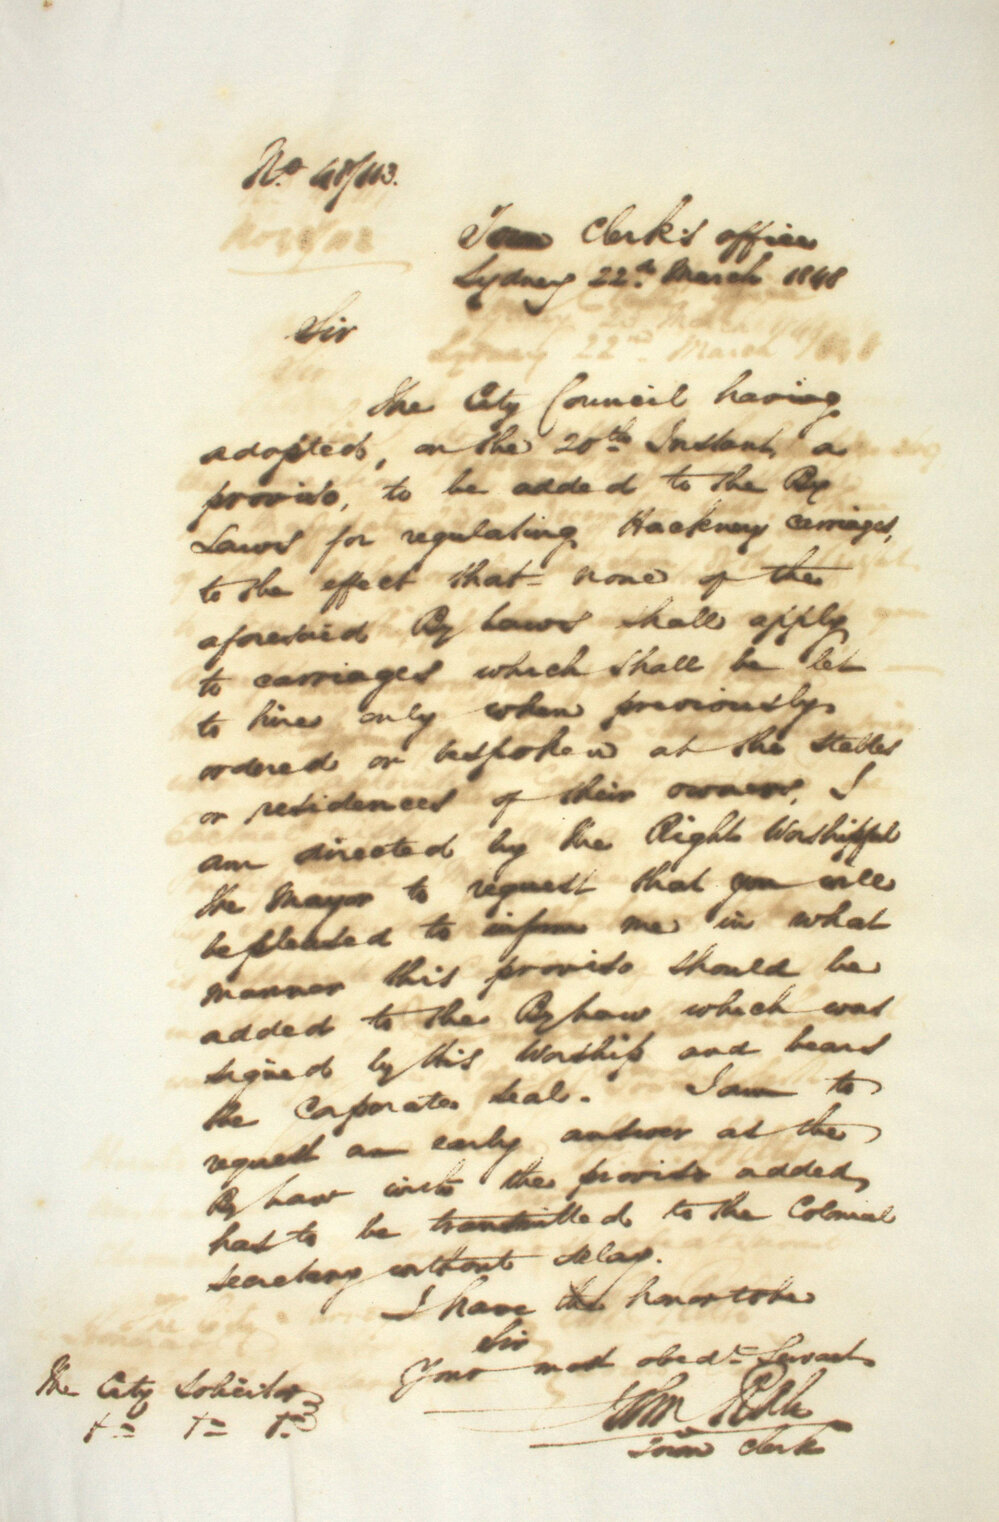 No 48/113.
Town Clerk's office
Sydney 22nd March 1848
Sir
The City Council having
adopted, on the 20th Instant, a
proviso, to be added to the By
Laws for regulating Hackney carriages,
to the effect that = none of the
aforesaid By Laws shall apply
to carriages which shall be let
to hire only when previously
ordered or bespoken at the stables
or residences of their owners, I
am directed by the Right Worshipful
the Mayor to request that you will
be pleased to inform me in what
manner this proviso should be
added to the By Law which was
signed by His Worship and bears
the Corporate Seal. I am to
request an early answer as the
By Law with the proviso added,
has to be transmitted to the Colonial
Secretary without delay.
I have the honor to be
Sir
Your most obedt Servant
John Rule
Town Clerk
The City Solicitor